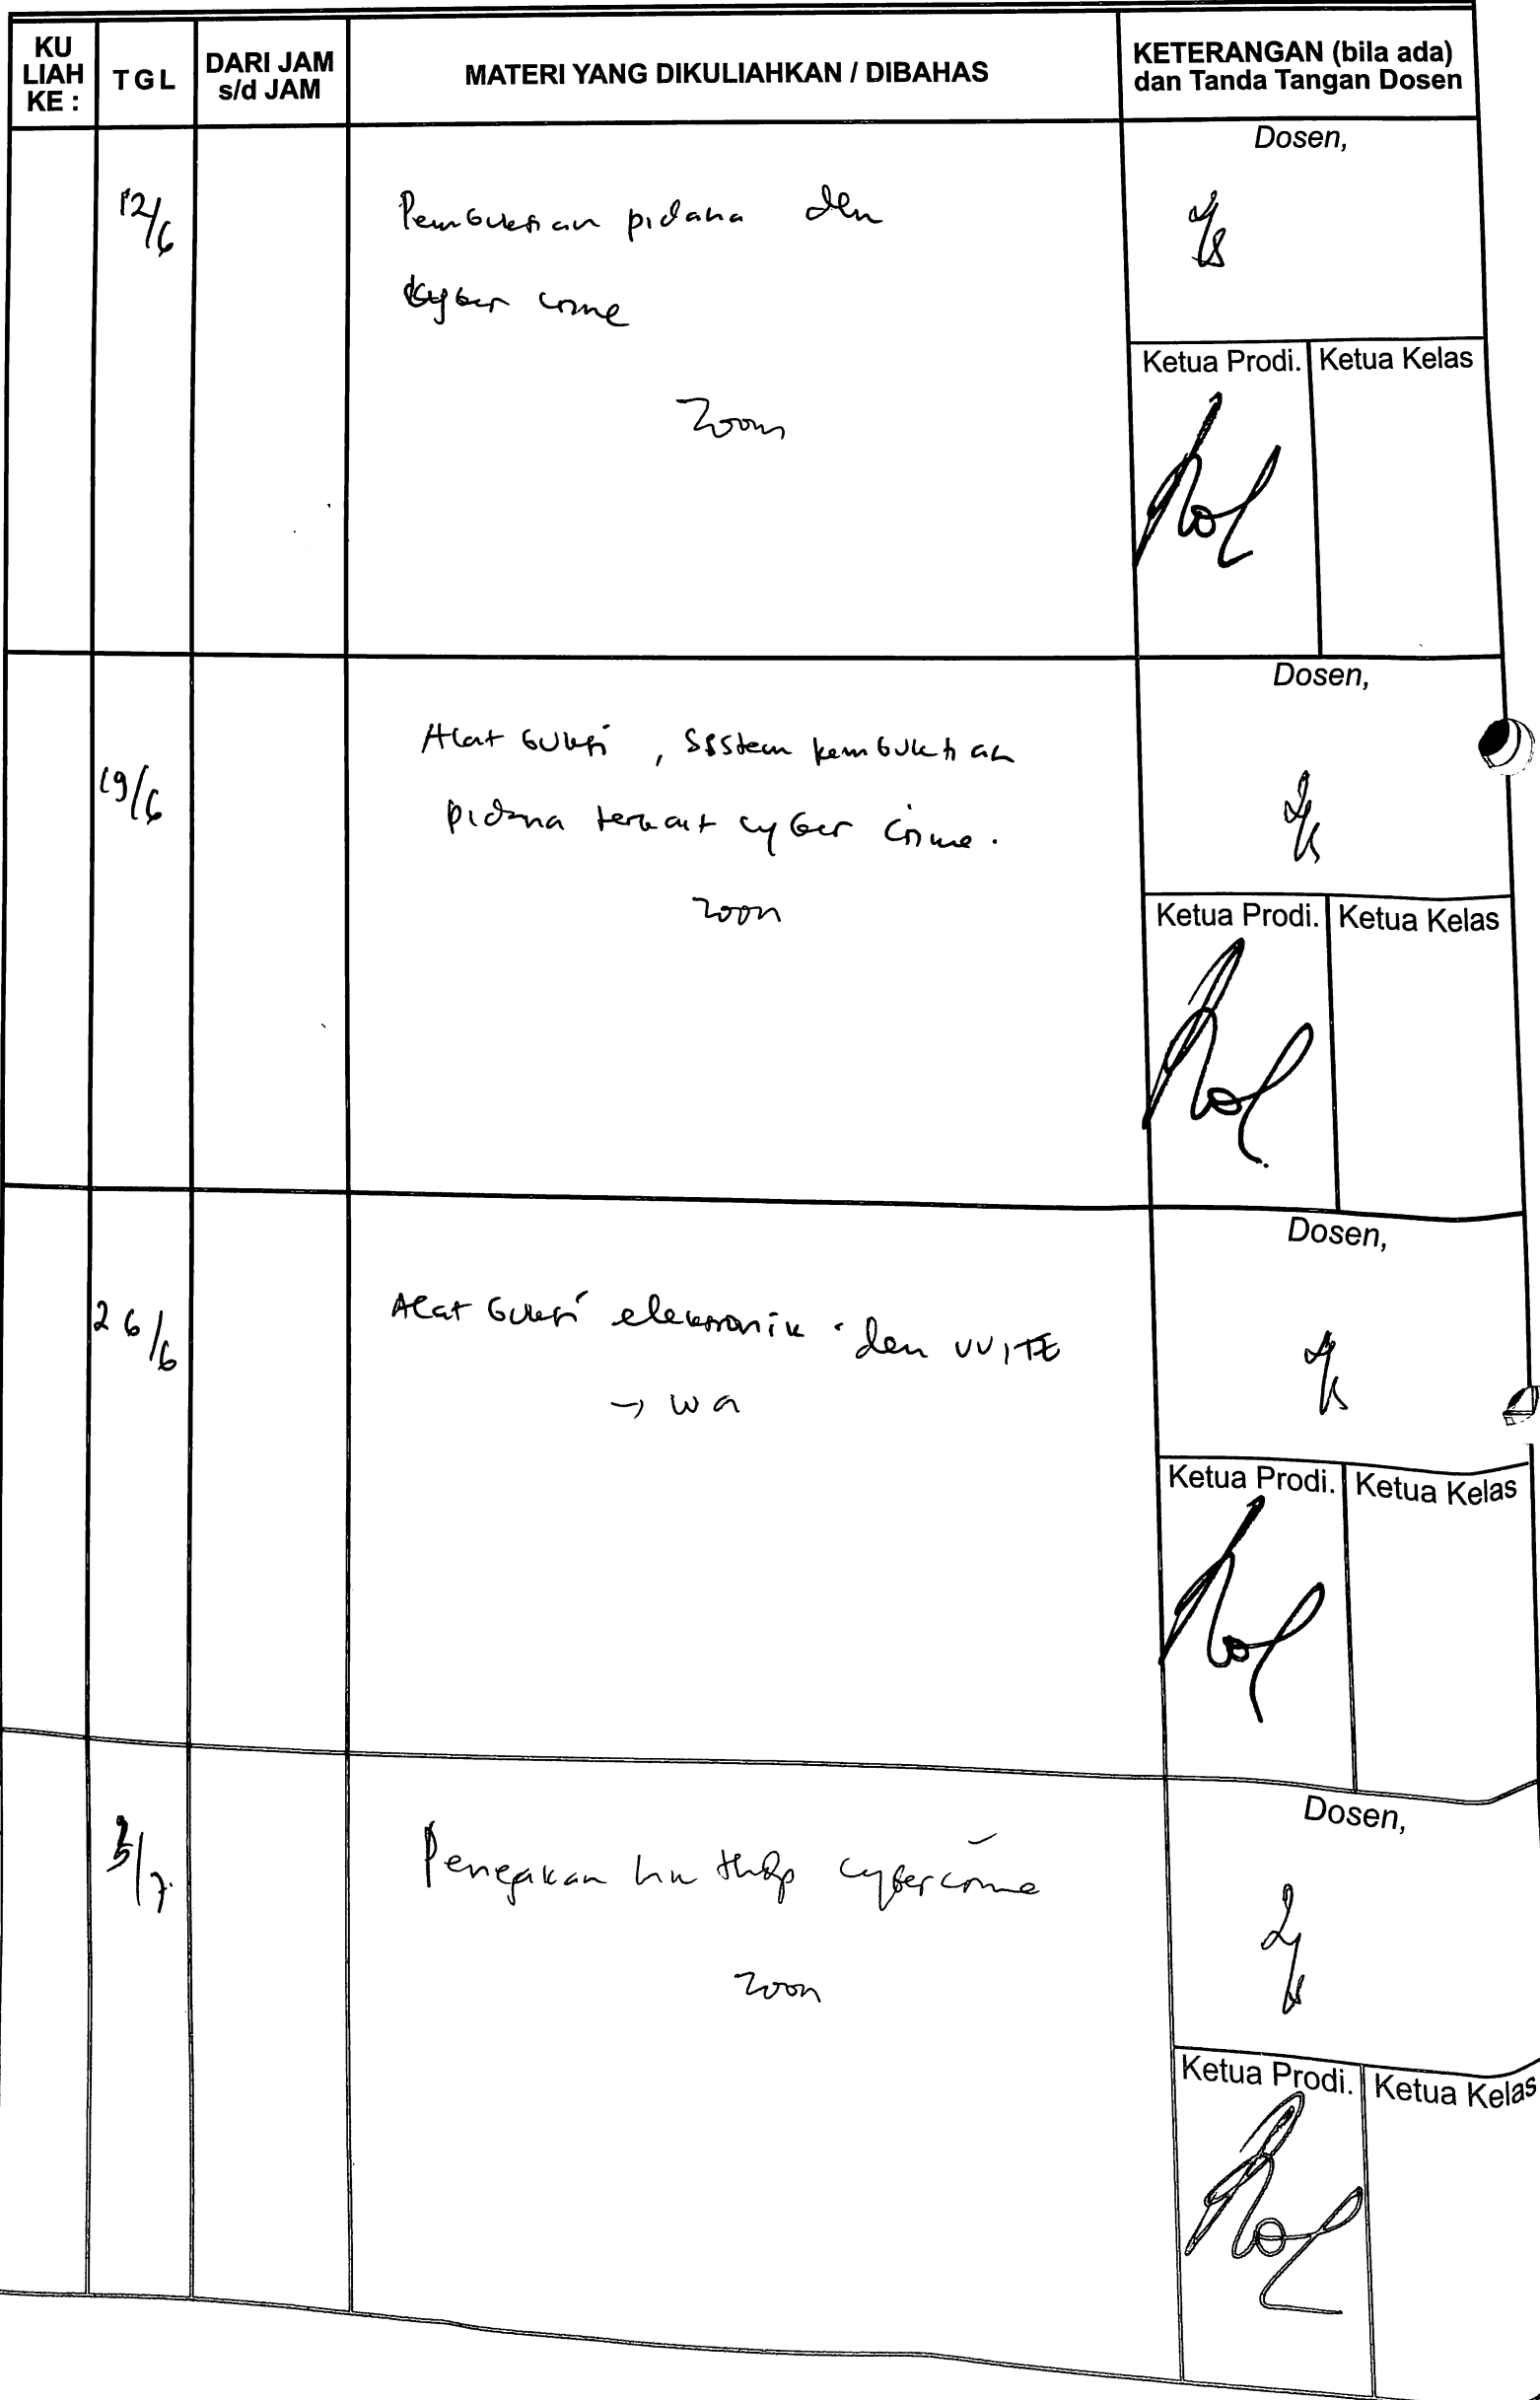 KU LIAH KE :
TGL
DARI JAM s/d JAM
MATERI YANG DIKULIAHKAN / DIBAHAS
KETERANGAN (bila ada) dan Tanda Tangan Dosen
Dosen,
12/6
Pembuktian pidana dlm
cyber crime
Zoom
Ketua Prodi. Ketua Kelas
Dosen,
19/6
Alat bukti , Sistem pembuktian
pidana terkait cyber crime.
Zoom
Ketua Prodi. Ketua Kelas
Dosen,
26/6
Alat bukti elektronik dlm UU ITE
→ wa
Ketua Prodi. Ketua Kelas
Dosen,
3/7
Penegakan hk thdp cybercrime
Zoom
Ketua Prodi. Ketua Kelas